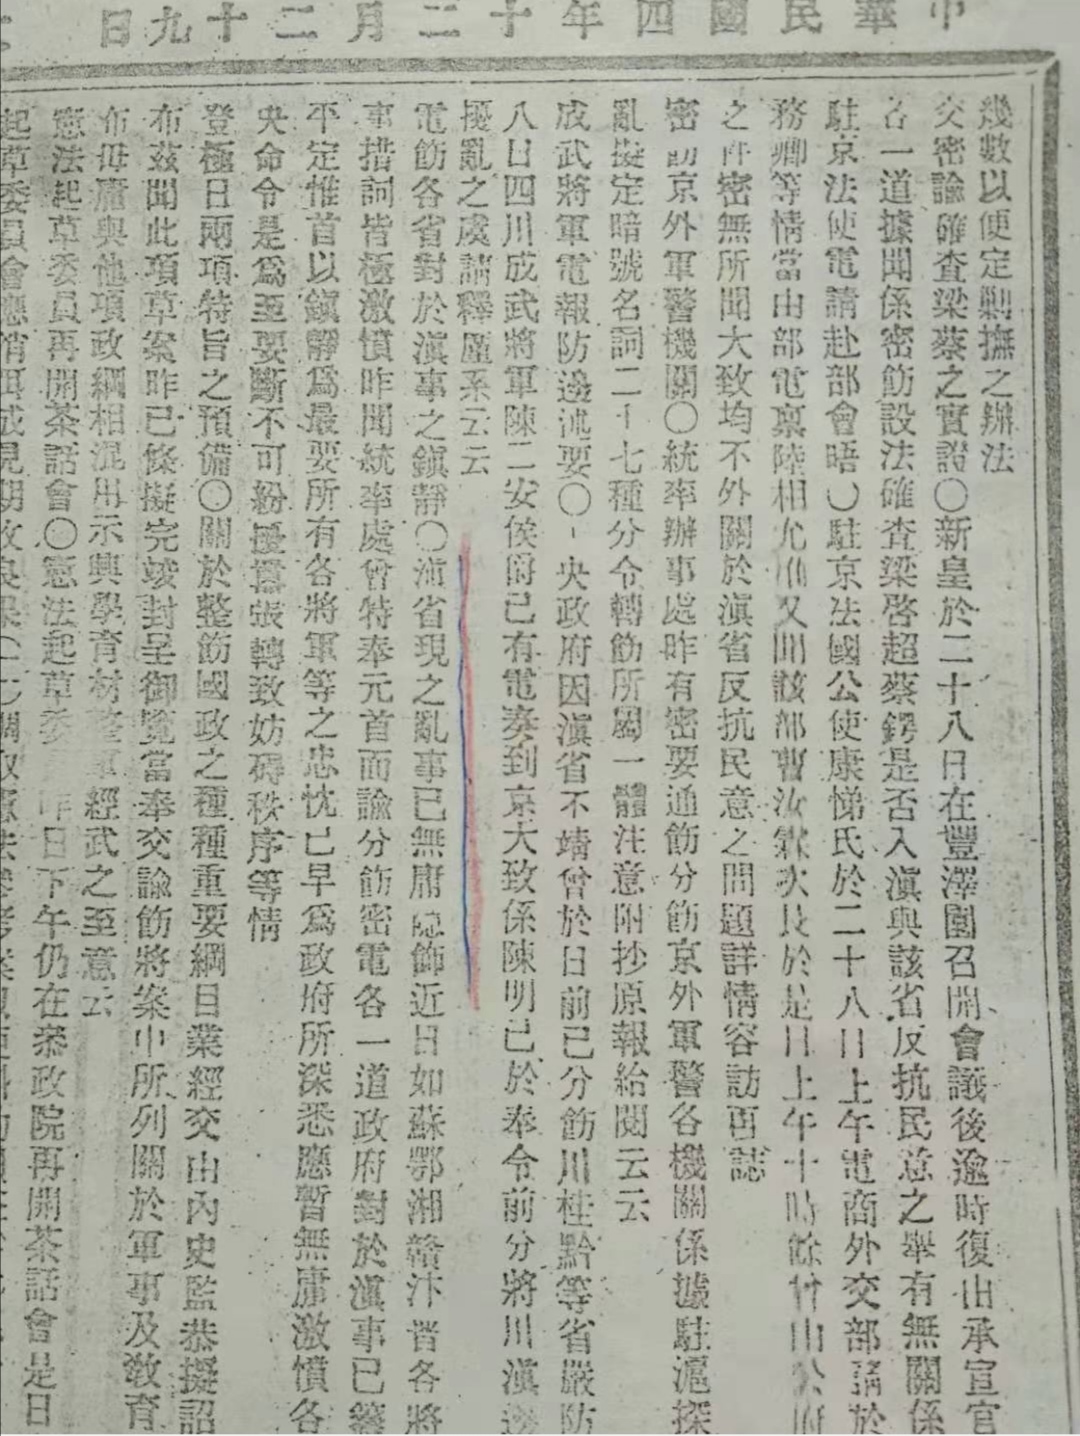 中華民國四年十二月二十九日
幾數以便定剿撫之辦法
交密諭確查梁蔡之實證〇新皇於二十八日在豐澤園召開會議後逾時復由承宣官
一道據聞係密飭設法確查梁啓超蔡鍔是否入滇與該省反抗民意之舉有無關係
駐京法使電請赴部會晤〇駐京法國公使康悌氏於二十八日上午電商外交部請於
務卿等情當由部電稟陸相允准又聞該部曹汝霖次長於是日上午十時餘
之件密無所聞大致均不外關於滇省反抗民意之問題詳情容訪再誌
密飭京外軍警機關〇統率辦事處昨有密要通飭分飭京外軍警各機關係據駐滬探
亂擬定暗號名詞二十七種分令轉飭所屬一體注意附抄原報給閱云云
成武將軍電報防邊述要〇央政府因滇省不靖曾於日前已分飭川桂黔等省嚴防
八日四川成武將軍陳二安侯爵已有電奏到京大致係陳明已於奉令前分將川滇邊
擾亂之處請釋廑系云云
電飭各省對於滇事之鎮靜〇滇省現之亂事已無庸隱飾近日如蘇鄂湘贛汴晋各將
事措詞皆極激憤昨聞統率處曾特奉元首面諭分飭密電各一道政府對於滇事已籌
平定惟首以鎮靜爲最要所有各將軍等之忠忱已早爲政府所深悉應暫無庸激憤各
央命令是爲至要斷不可紛擾囂張轉致妨碍秩序等情
登極日兩項特旨之預備〇關於整飭國政之種種重要綱目業經交由內史監恭擬詔
布茲聞此項草案昨已條擬完竣封呈御覽當奉交諭飭將案中所列關於軍事及敎育
布毋庸與他項政綱相混用示興學育材整軍經武之至意云
憲法起草委員再開茶話會〇憲法起草委 昨日下午仍在叅政院再開茶話會是日
起草委員會應